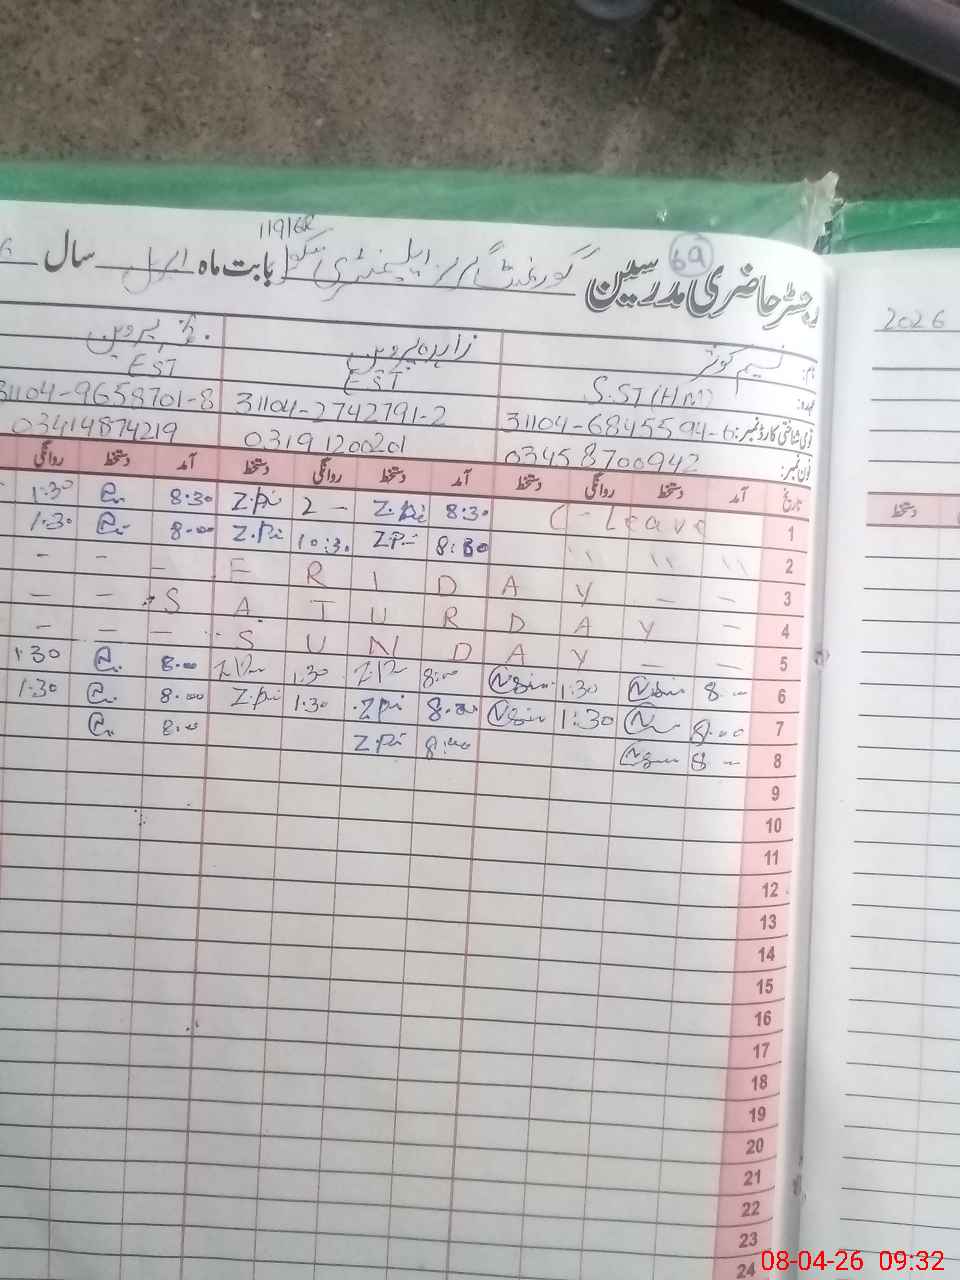 69
رجسٹر حاضری مدرسین گورنمنٹ گرلز ایلیمنٹری سکول 119/6R بابت ماہ اپریل سال
2026
نام: نسیم کوثر زاہدہ پروین پروین
عہدہ: S.ST(HM) EST EST
قومی شناختی کارڈ نمبر: 31104-6845594-6 31104-2742791-2 31104-9658701-8
فون نمبر: 03458700942 03191200201 03414874219
تاریخ آمد دستخط روانگی دستخط آمد دستخط روانگی دستخط آمد دستخط روانگی
دستخط
1 C-Leave 8:30 Z.Pi 2 - Z.Pi 8:30 1:30
2 " " " 8:30 Z.Pi 10:30 Z.Pi 8:00 1:30
3 - - F R I D A Y - - -
4 - S A T U R D A Y - -
5 - - S U N D A Y - - -
6 8 - 1:30 8:00 1:30 8:00 1:30
7 8:00 1:30 8:00 Z.Pi 1:30 Z.Pi 8:00 1:30
8 8 - 8:00 Z.Pi 8:00
9
10
11
12
13
14
15
16
17
18
19
20
21
22
23
24
08-04-26 09:32